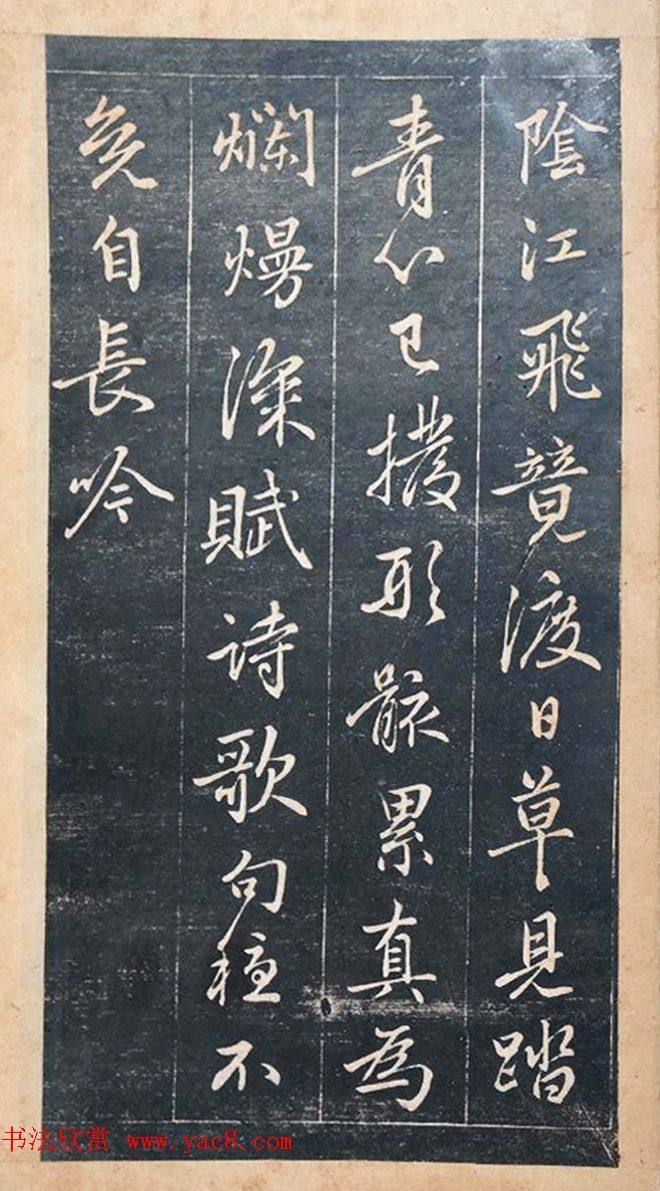 陰江飛竟渡日草見踏
青心已撥形骸累真為
爛熳深賦詩歌句穩不
免自長吟
书法欣赏 www.yac8.com